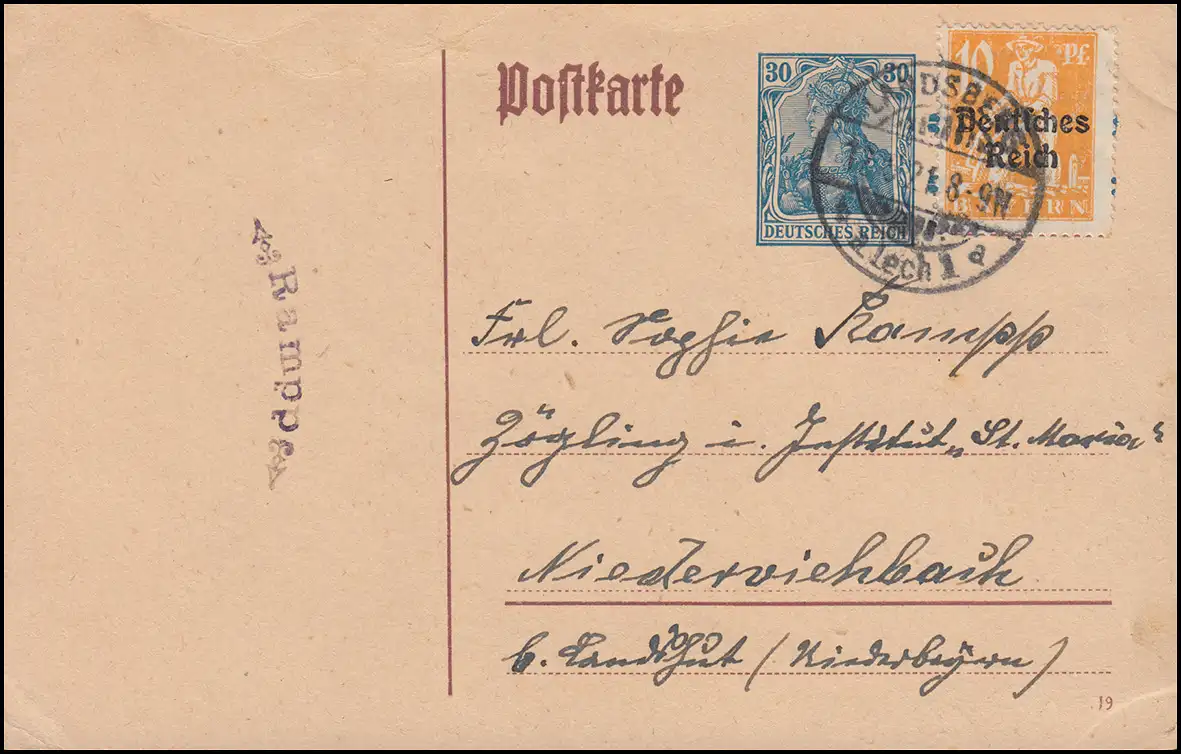 Postkarte
30 30
DEUTSCHES REICH
10 Pf.
Deutsches
Reich
BAYERN
LANDSBERG
21 8-9N
a. Lech 1 a
Rampp
Frl. Sophie Rampp
Zögling i. Institut „St. Maria“
Niederviehbach
b. Landshut (Niederbayern)
19